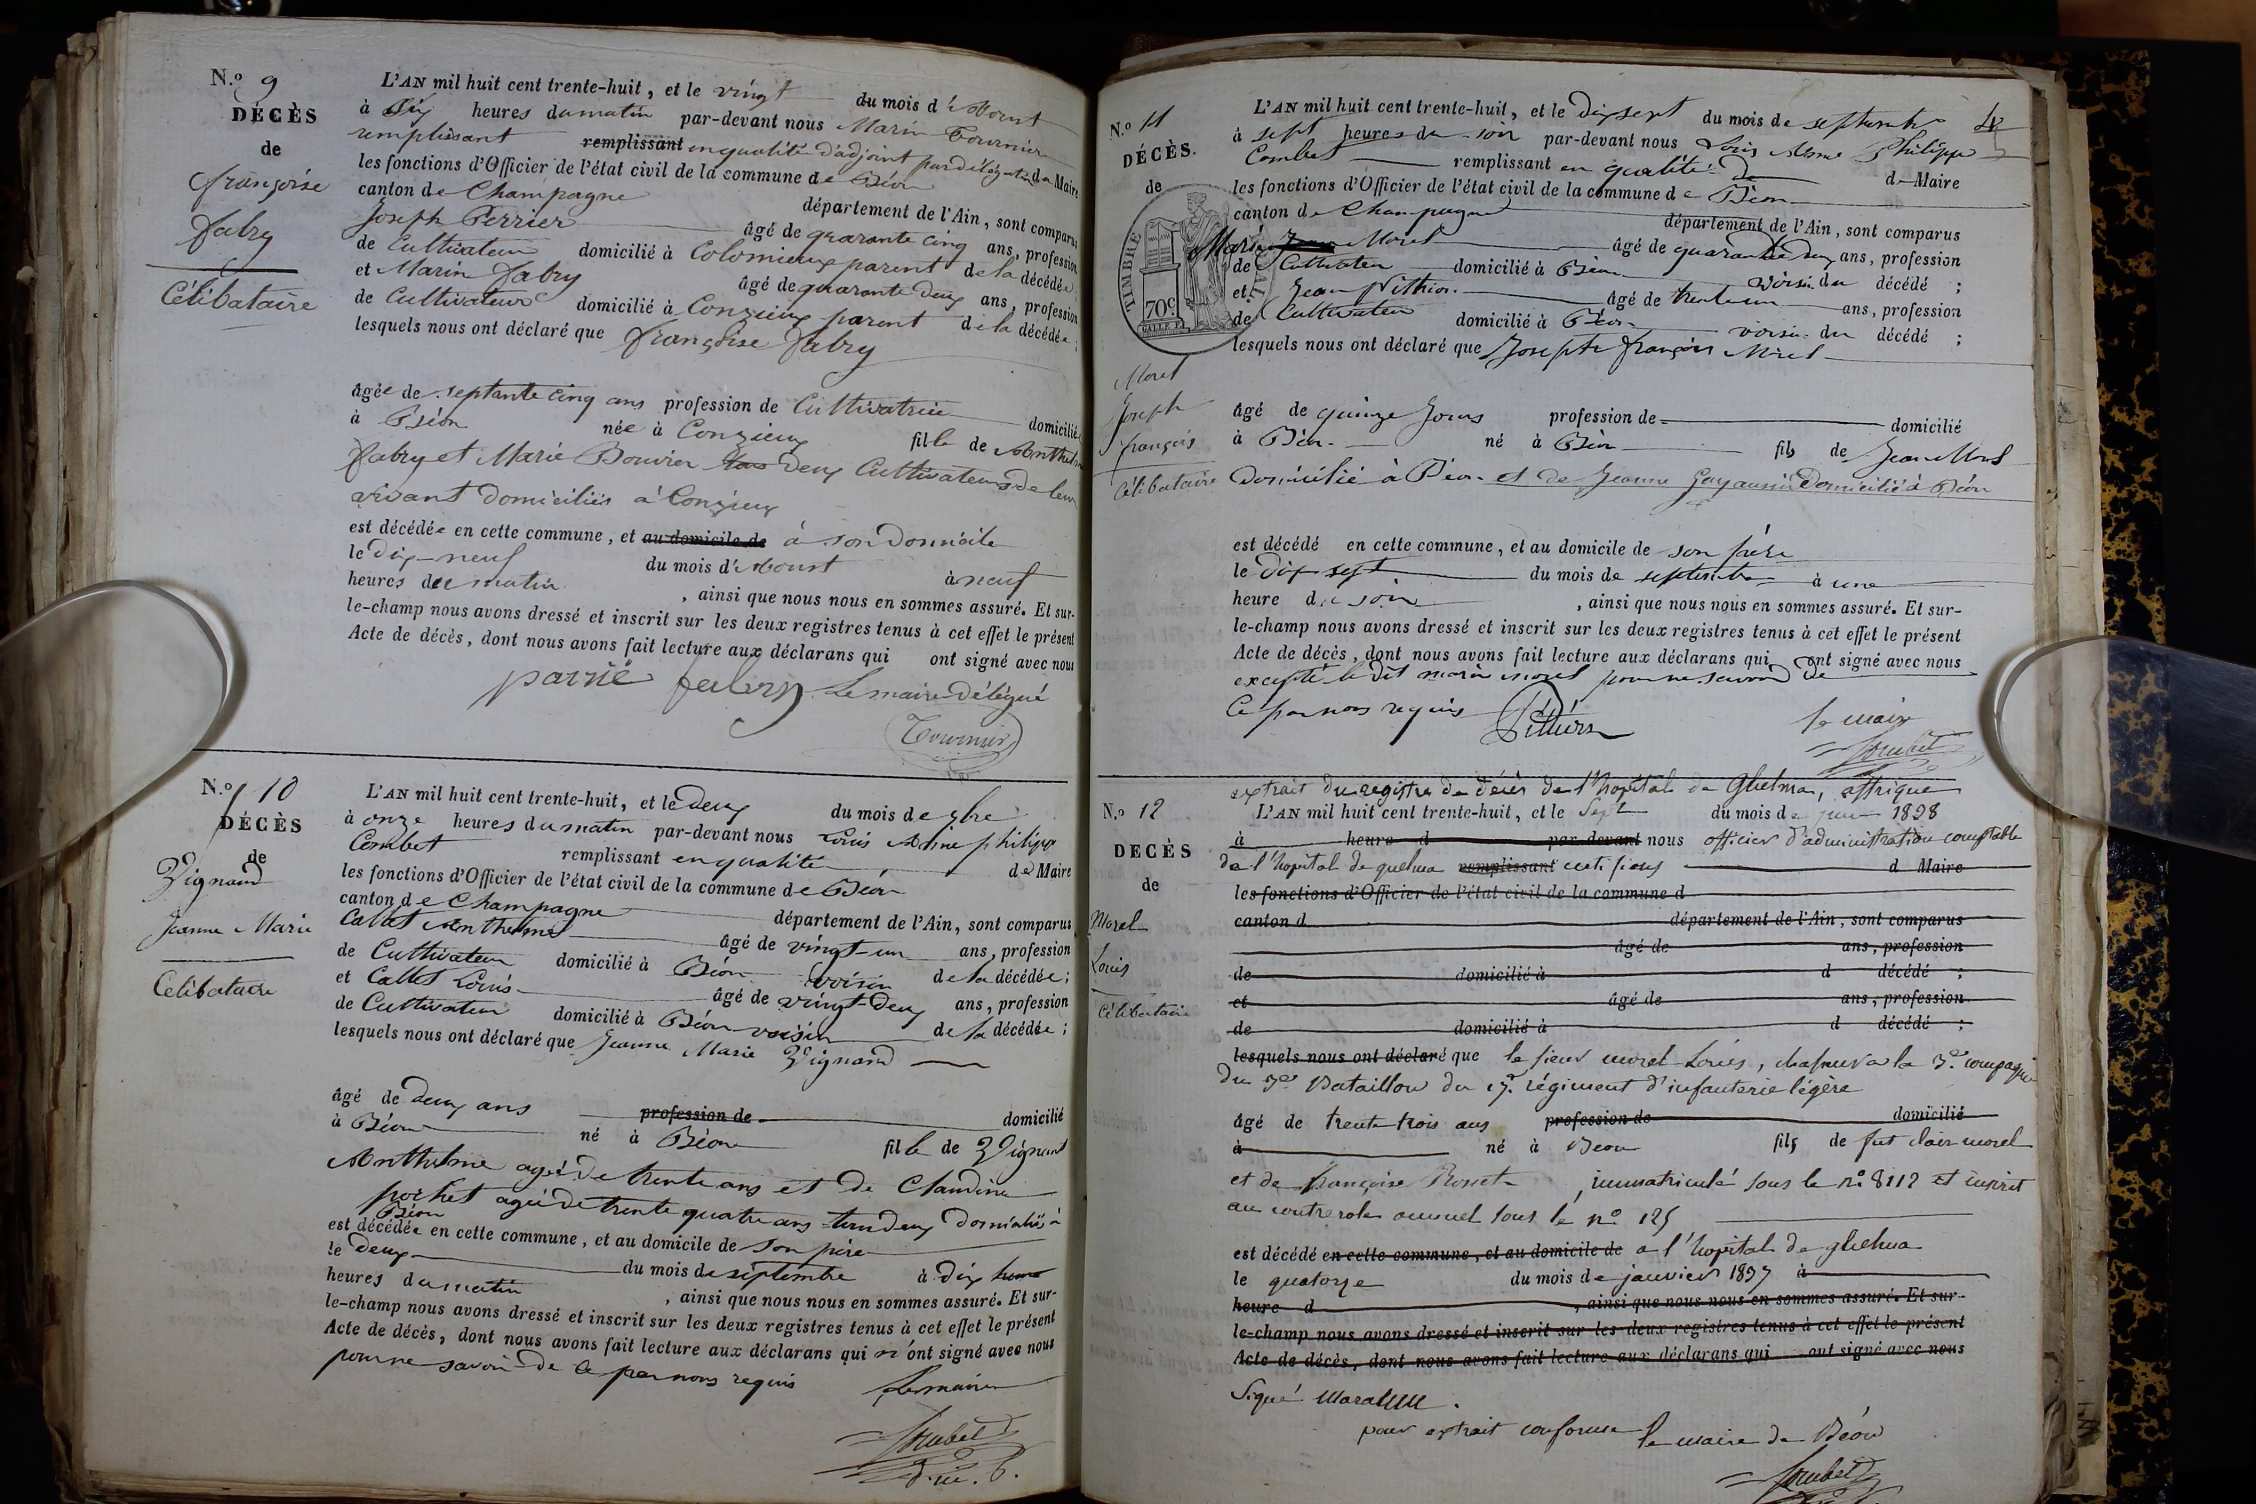 N.o 9
DÉCÈS
de
françoise
fabry
Célibataire
L'AN mil huit cent trente-huit, et le vingt du mois d'Aoust
à dix heures du matin par-devant nous Marin Tournier
remplissant remplissant en qualité d'adjoint par délégation du Maire
les fonctions d'Officier de l'état civil de la commune de Béon
canton de Champagne département de l'Ain, sont comparus
Joseph Perrier âgé de quarante cinq ans, profession
de Cultivateur domicilié à Colomieux parent de la décédée
et Marin fabry âgé de quarante deux ans, profession
de Cultivateur domicilié à Conzieux parent de la décédée ;
lesquels nous ont déclaré que françoise fabry
âgée de septante cinq ans profession de Cultivatrice domiciliée
à Béon née à Conzieux fille de Anthelme
fabry et Marie Bouvier tous Deux Cultivateurs de leur
vivant domiciliés à Conzieux
est décédée en cette commune, et au domicile de à son Domicile
le Dix-neuf du mois d'Aoust à neuf
heures du matin, ainsi que nous nous en sommes assuré. Et sur-
le-champ nous avons dressé et inscrit sur les deux registres tenus à cet effet le présent
Acte de décès, dont nous avons fait lecture aux déclarans qui ont signé avec nous
fabry Le maire Délégué
Tournier
N.o 10
DÉCÈS
de
Vignand
Jeanne Marie
Célibataire
L'AN mil huit cent trente-huit, et le deux du mois de 9bre
à onze heures du matin par-devant nous Louis Aimé philippe
Combet remplissant en qualité de Maire
les fonctions d'Officier de l'état civil de la commune de Béon
canton de Champagne département de l'Ain, sont comparus
Callet Anthelme âgé de vingt-un ans, profession
de Cultivateur domicilié à Béon voisin de la décédée ;
et Callet Louis âgé de vingt-deux ans, profession
de Cultivateur domicilié à Béon voisin de la décédée ;
lesquels nous ont déclaré que Jeanne Marie Vignand
âgé de deux ans profession de domicilié
à Béon né à Béon fille de Vignand
Anthelme agé de trente ans et de Claudine
pochet agée de trente quatre ans tous deux Domiciliés à
Béon
est décédée en cette commune, et au domicile de son père
le deux du mois de septembre à dix heures
heures du matin, ainsi que nous nous en sommes assuré. Et sur-
le-champ nous avons dressé et inscrit sur les deux registres tenus à cet effet le présent
Acte de décès, dont nous avons fait lecture aux déclarans qui n'ont signé avec nous
pour ne savoir de ce par nous requis Le maire
Combet
4
N.o 11
DÉCÈS.
de
TIMBRE
70c
Morel
Joseph
françois
Célibataire
L'AN mil huit cent trente-huit, et le Dix sept du mois de septembre
à sept heures du soir par-devant nous Louis Aimé Philippe
Combet remplissant en qualité de de Maire
les fonctions d'Officier de l'état civil de la commune de Béon
canton de Champagne département de l'Ain, sont comparus
Marin Morel âgé de quarante deux ans, profession
de Cultivateur domicilié à Béon voisin du décédé ;
et Jean Pithion âgé de trente un ans, profession
de Cultivateur domicilié à Béon voisin du décédé ;
lesquels nous ont déclaré que Joseph françois Morel
âgé de quinze Jours profession de domicilié
à Béon né à Béon fils de Jean Morel
Domicilié à Béon et de Jeanne Domicilié à Béon
est décédé en cette commune, et au domicile de son père
le dix sept du mois de septembre à une
heure du soir, ainsi que nous nous en sommes assuré. Et sur-
le-champ nous avons dressé et inscrit sur les deux registres tenus à cet effet le présent
Acte de décès, dont nous avons fait lecture aux déclarans qui ont signé avec nous
excepté le dit marin morel pour ne savoir de
Ce par nous requis Pithion le maire
Combet
extrait du registre de décès de l'hopital de Ghelma, affrique
N.o 12
DÉCÈS
de
Morel
Louis
Célibataire
L'AN mil huit cent trente-huit, et le Sept du mois de juin 1838
à heure d par-devant nous officier d'administration comptable
de l'hopital de guelma remplissant certifions d Maire
les fonctions d'Officier de l'état civil de la commune d
canton d département de l'Ain, sont comparus
âgé de ans, profession
de domicilié à d décédé ;
et âgé de ans, profession
de domicilié à d décédé ;
lesquels nous ont déclaré que le sieur morel Louis, chasseur a la 3e compagnie
du 3e Bataillon du 17e régiment d'infanterie légère
âgé de trente trois ans profession de domicilié
à né à Beon fils de fut clair morel
et de françoise Rosset, immatriculé sous le no 8112 et inscrit
au controle annuel sous le no 125
est décédé en cette commune, et au domicile de a l'hopital de ghelma
le quatorze du mois de janvier 1837 à
heure d, ainsi que nous nous en sommes assuré. Et sur-
le-champ nous avons dressé et inscrit sur les deux registres tenus à cet effet le présent
Acte de décès, dont nous avons fait lecture aux déclarans qui ont signé avec nous
Signé
pour extrait conforme le maire de Béon
Combet